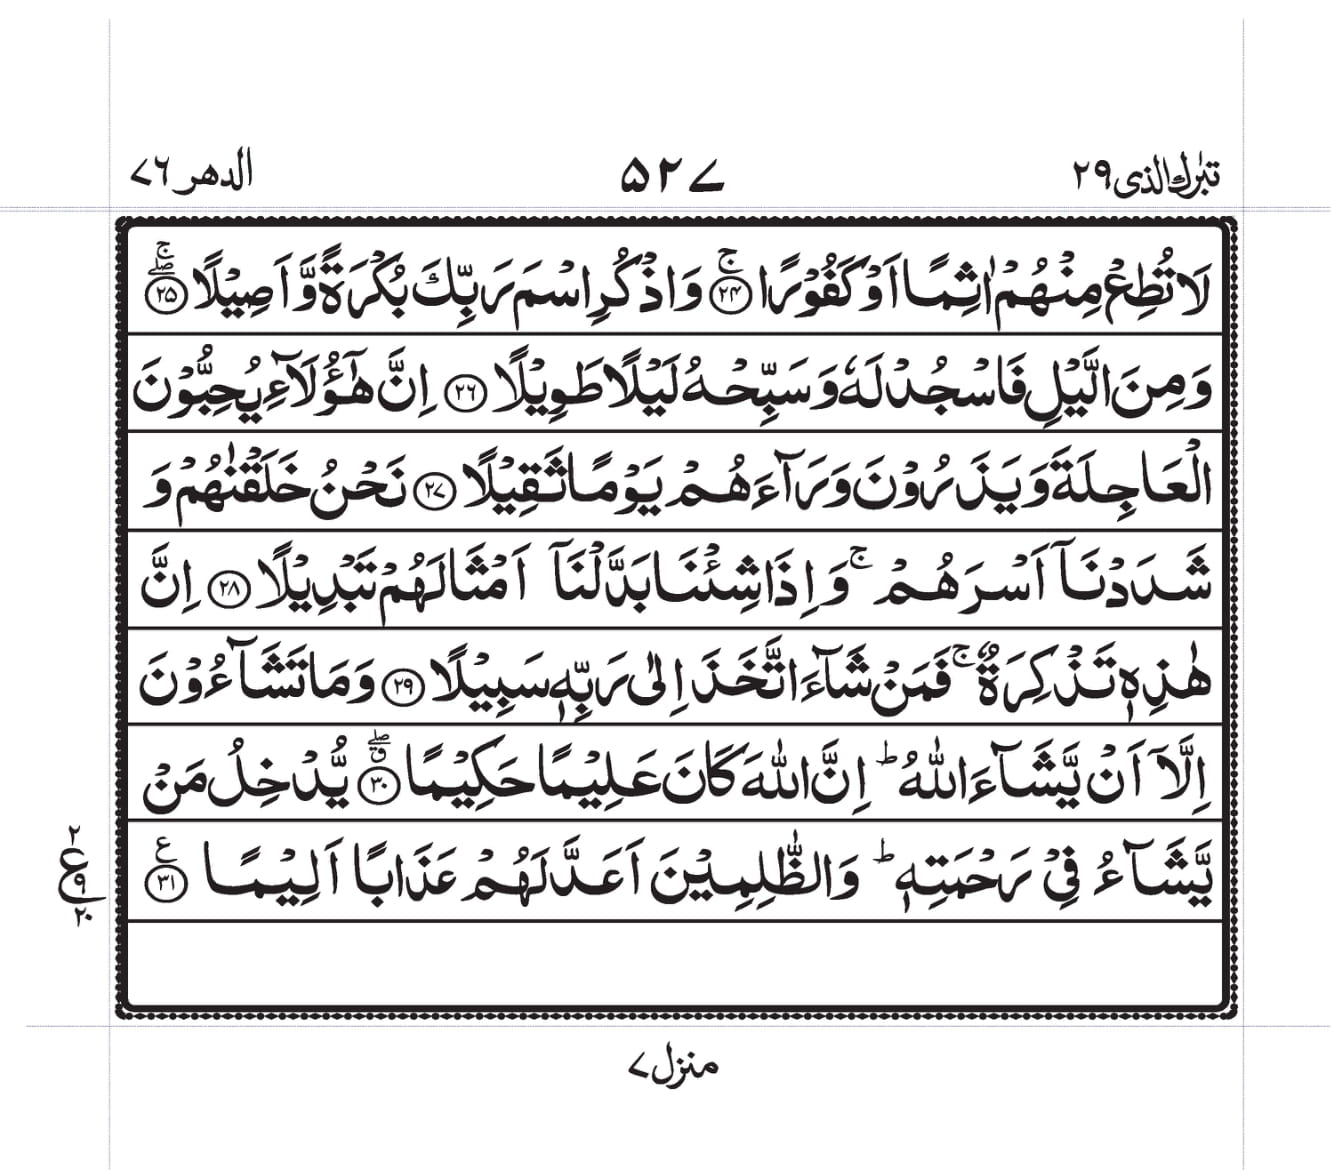 تبٰرك الذى ٢٩
٥٢٧
الدهر ٧٦
لَا تُطِعْ مِنْهُمْ اٰثِمًا اَوْ كَفُوْرًا ۚ‏﴿۲۴﴾ وَ اذْكُرِ اسْمَ رَبِّكَ بُكْرَةً وَّ اَصِيْلًا ۖۚ‏﴿۲۵﴾
وَ مِنَ الَّيْلِ فَاسْجُدْ لَهٗ وَ سَبِّحْهُ لَيْلًا طَوِيْلًا ﴿۲۶﴾ اِنَّ هٰٓؤُلَآءِ يُحِبُّوْنَ
الْعَاجِلَةَ وَ يَذَرُوْنَ وَرَآءَهُمْ يَوْمًا ثَقِيْلًا ﴿۲۷﴾ نَحْنُ خَلَقْنٰهُمْ وَ
شَدَدْنَاۤ اَسْرَهُمْ ۚ وَ اِذَا شِئْنَا بَدَّلْنَاۤ اَمْثَالَهُمْ تَبْدِيْلًا ﴿۲۸﴾ اِنَّ
هٰذِهٖ تَذْكِرَةٌ ۚ فَمَنْ شَآءَ اتَّخَذَ اِلٰى رَبِّهٖ سَبِيْلًا ﴿۲۹﴾ وَ مَا تَشَآءُوْنَ
اِلَّاۤ اَنْ يَّشَآءَ اللّٰهُ ؕ اِنَّ اللّٰهَ كَانَ عَلِيْمًا حَكِيْمًا ۗۖ‏﴿۳۰﴾ يُّدْخِلُ مَنْ
يَّشَآءُ فِيْ رَحْمَتِهٖ ؕ وَ الظّٰلِمِيْنَ اَعَدَّ لَهُمْ عَذَابًا اَلِيْمًا ﴿۳۱﴾ ع
٢
ع ٩
٢٠
منزل ٧